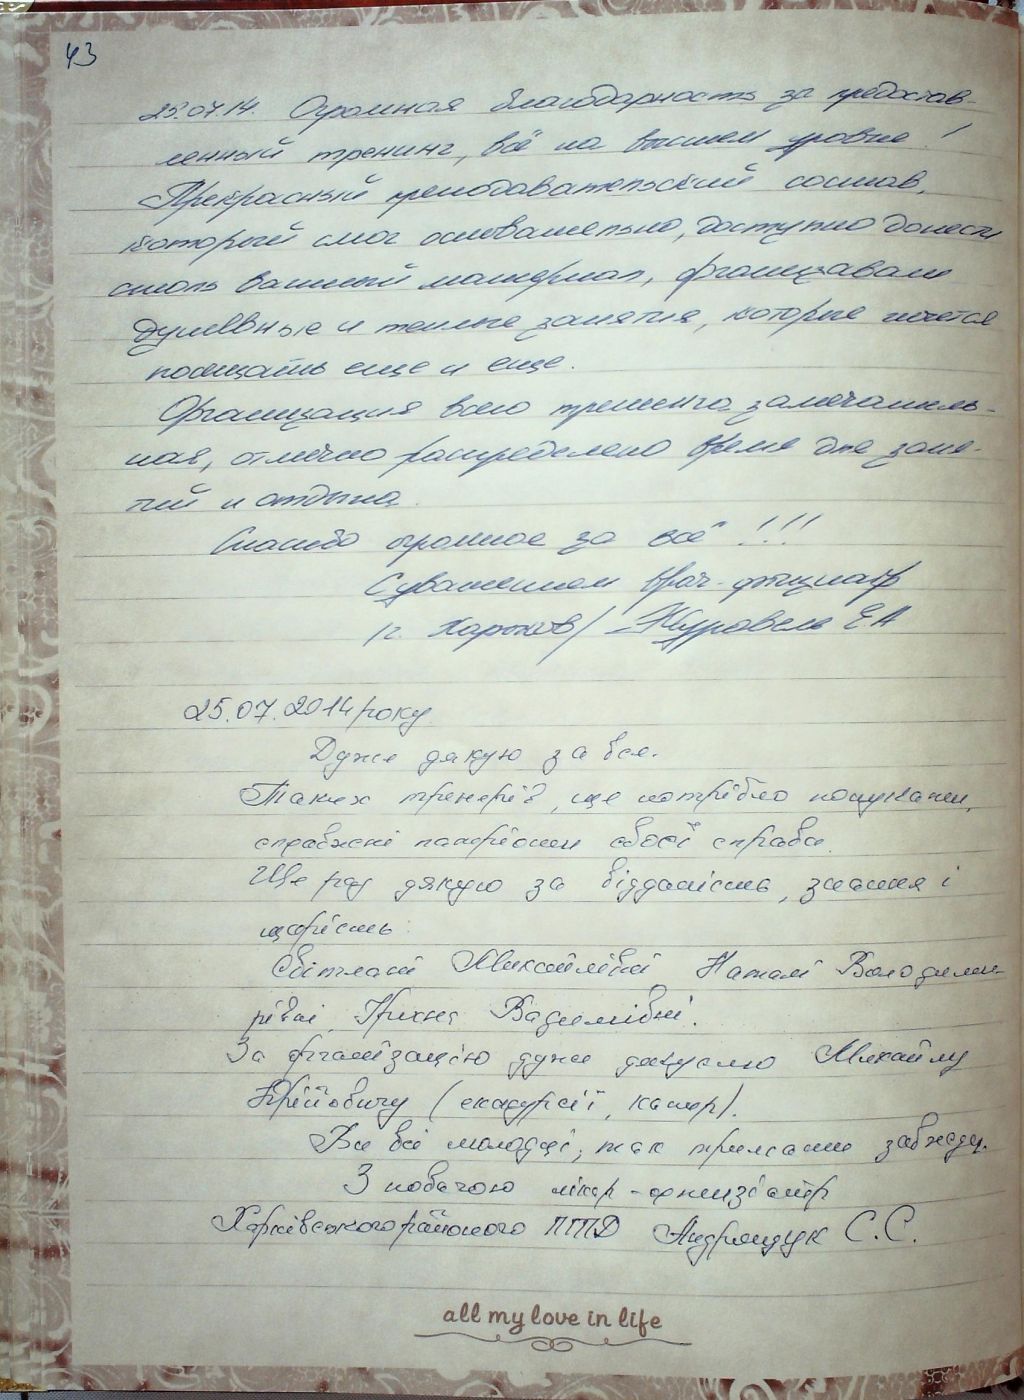 43
25.07.14. Огромная благодарность за предостав-
ленный тренинг, всё на высшем уровне!
Прекрасный преподавательский состав,
который смог основательно, доступно донести
столь важный материал, организовали
душевные и теплые занятия, которые хочется
посещать еще и еще.
Организация всего тренинга замечатель-
ная, отлично распределено время для заня-
тий и отдыха.
Спасибо огромное за всё !!!
С уважением врач-фтизиатр
/г. Харьков/ Журавель Е А
25.07.2014 року
Дуже дякую за все.
Таких тренерів, ще потрібно пошукати,
справжні патріоти своєї справи.
Ще раз дякую за відданість, знання і
щирість:
Світлані Михайлівні Наталі Володими-
рівні, Ірині Вадимівні.
За організацію дуже дякуємо Михайлу
Юрійовичу (екскурсії, катер).
Ви всі молодці, так тримати завжди.
З повагою лікар-фтизіатр
Харківського районого ПТПД Андрощук С.С.
all my love in life